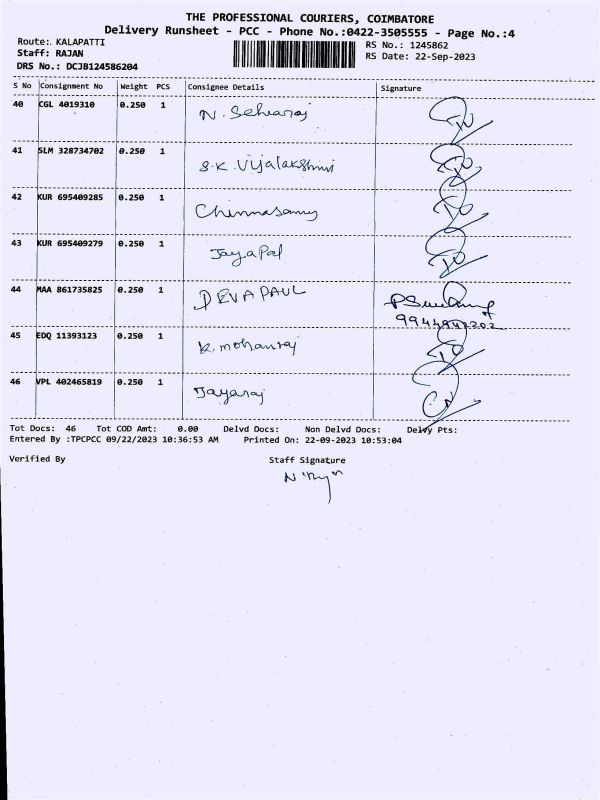 THE PROFESSIONAL COURIERS, COIMBATORE
Delivery Runsheet - PCC - Phone No.:0422-3505555 - Page No.:4
Route:. KALAPATTI
Staff: RAJAN
DRS No.: DCJB124586204
RS No.: 1245862
RS Date: 22-Sep-2023
S No Consignment No Weight PCS Consignee Details Signature
40 CGL 4019310 0.250 1 N. Selvaraj
41 SLM 328734702 0.250 1 S.K. Vijalakshmi
42 KUR 695409285 0.250 1 Chinnasamy
43 KUR 695409279 0.250 1 Jayapal
44 MAA 861735825 0.250 1 DEVAPAUL
45 EDQ 11393123 0.250 1 K. mohanraj
46 VPL 402465819 0.250 1 Jayaraj
Tot Docs: 46 Tot COD Amt: 0.00 Delvd Docs: Non Delvd Docs: Delvy Pts:
Entered By :TPCPCC 09/22/2023 10:36:53 AM Printed On: 22-09-2023 10:53:04
Verified By Staff Signature